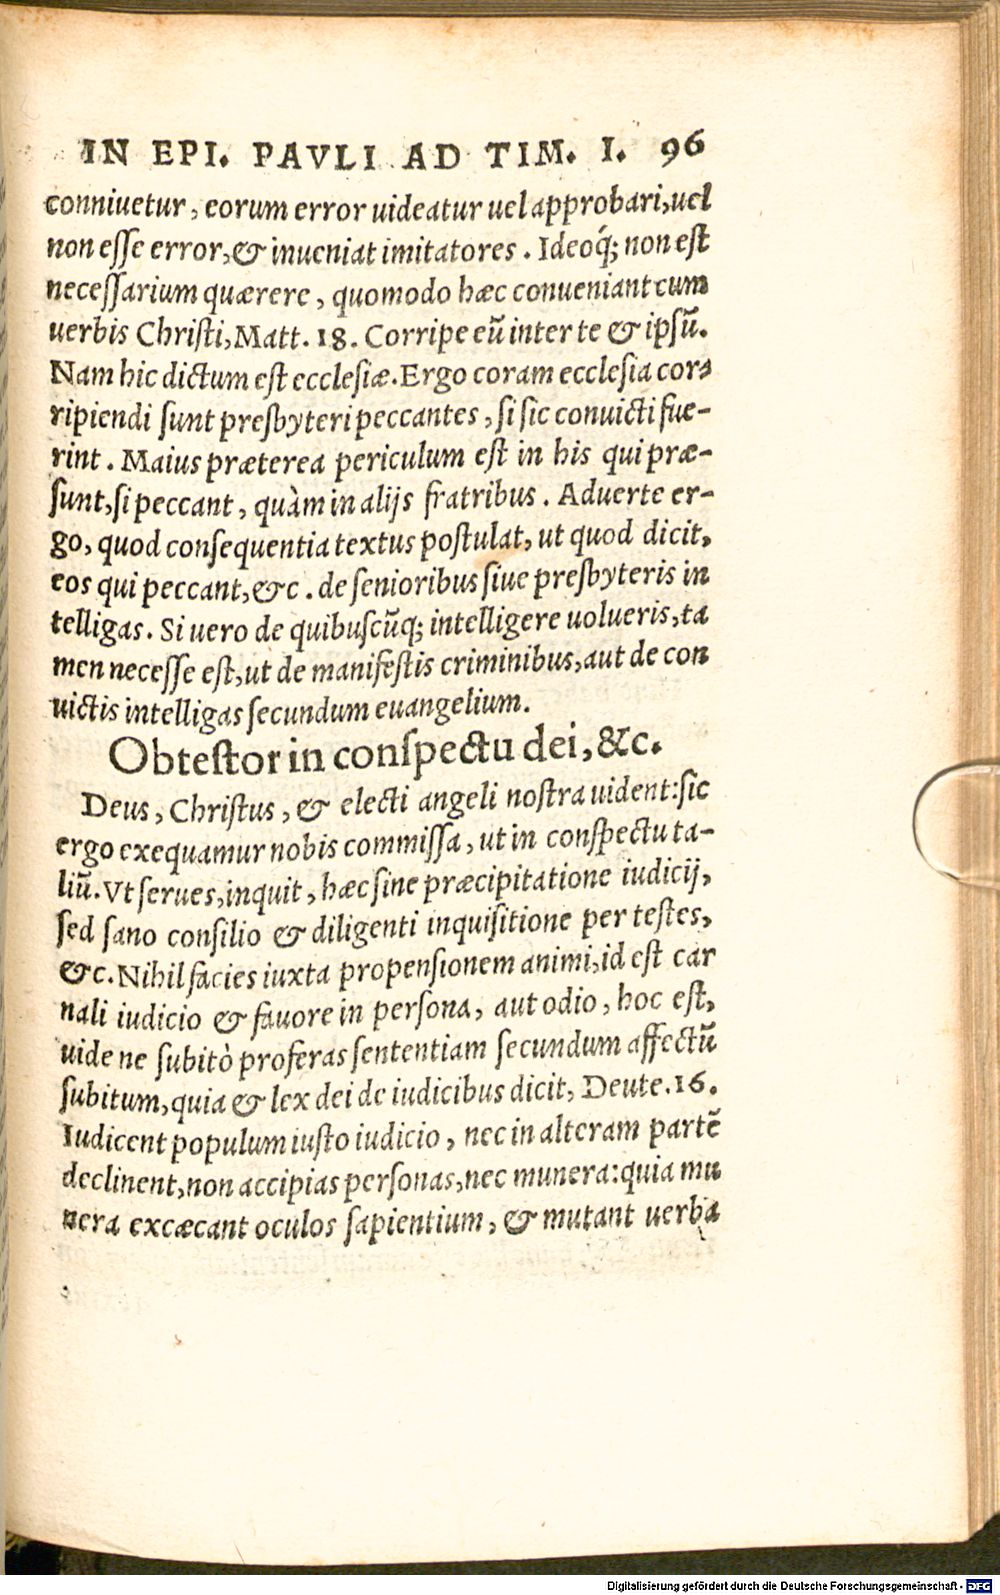 IN EPI. PAVLI AD TIM. I. 96
conniuetur, eorum error uideatur uel approbari, uel
non esse error, & inueniat imitatores. Ideoq́; non est
necessarium quærere, quomodo hæc conueniant cum
uerbis Christi, Matt. 18. Corripe eũ inter te & ipsũ.
Nam hic dictum est ecclesiæ. Ergo coram ecclesia cor-
ripiendi sunt presbyteri peccantes, si sic conuicti fue-
rint. Maius præterea periculum est in his qui præ-
sunt, si peccant, quàm in alijs fratribus. Aduerte er-
go, quod consequentia textus postulat, ut quod dicit,
eos qui peccant, &c. de senioribus siue presbyteris in
telligas. Si uero de quibuscũq; intelligere uolueris, ta
men necesse est, ut de manifestis criminibus, aut de con
uictis intelligas secundum euangelium.
Obtestor in conspectu dei, &c.
Deus, Christus, & electi angeli nostra uident: sic
ergo exequamur nobis commissa, ut in conspectu ta-
liũ. Vt serues, inquit, hæc sine præcipitatione iudicij,
sed sano consilio & diligenti inquisitione per testes,
&c. Nihil facies iuxta propensionem animi, id est car
nali iudicio & fauore in persona, aut odio, hoc est,
uide ne subitò proferas sententiam secundum affectũ
subitum, quia & lex dei de iudicibus dicit, Deute. 16.
Iudicent populum iusto iudicio, nec in alteram partẽ
declinent, non accipias personas, nec munera: quia mu
nera excæcant oculos sapientium, & mutant uerba
Digitalisierung gefördert durch die Deutsche Forschungsgemeinschaft - DFG